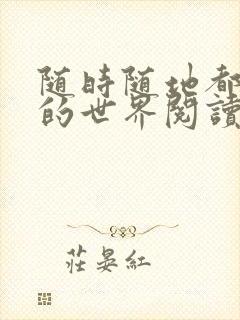 随時随地都
的世界閱讀
莊晏紅